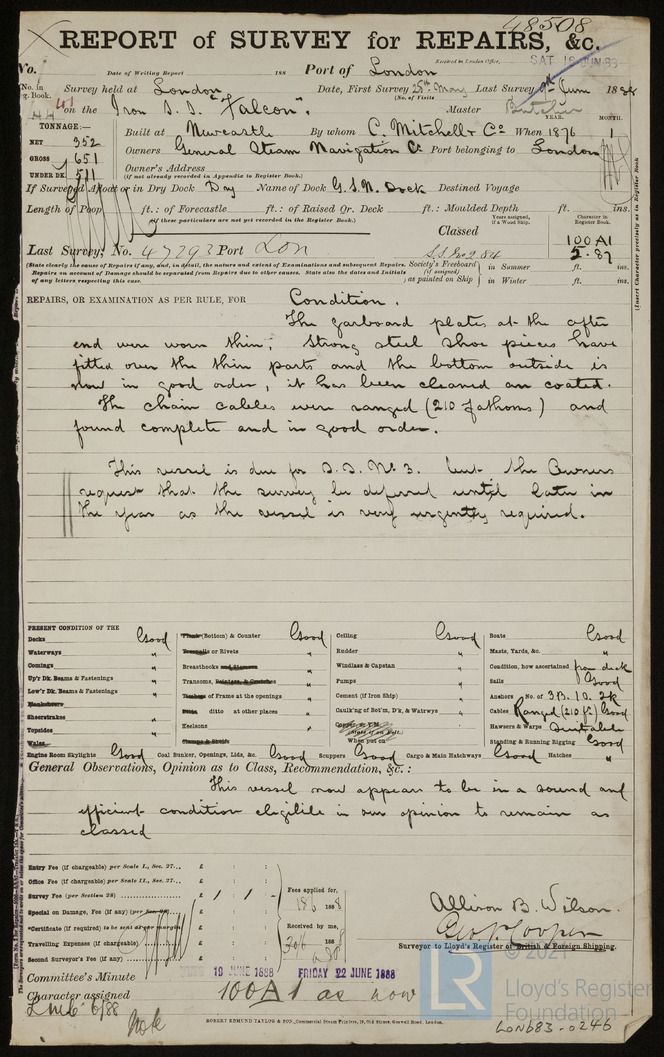 48508
REPORT of SURVEY for REPAIRS, &c.
No. Date of Writing Report 188 Port of London Received in London Office, SAT 16 JUN 88
No. in Reg. Book. Survey held at London Date, First Survey 25th May Last Survey 9th June 1888
(No. of Visits
41 on the Iron S.S. "Falcon". Master Butcher
44
TONNAGE:—
NET 352
GROSS 651
UNDER DK. 511
YEAR. MONTH.
Built at Newcastle By whom C. Mitchell & Co When 1876 1
Owners General Steam Navigation Co Port belonging to London
Owner's Address
(if not already recorded in Appendix to Register Book.)
If Surveyed Afloat or in Dry Dock Dry Name of Dock G.S.N. Dock Destined Voyage
Length of Poop ft.: of Forecastle ft.: of Raised Qr. Deck ft.: Moulded Depth ft. ins.
(If these particulars are not yet recorded in the Register Book.)
Years assigned, if a Wood Ship. Character in Register Book.
Classed 100A1
5.87
Last Survey, No. 47293 Port Lon S.S. No 2 84
(State clearly the cause of Repairs if any, and, in detail, the nature and extent of Examinations and subsequent Repairs.
Repairs on account of Damage should be separated from Repairs due to other causes. State also the dates and Initials
of any letters respecting this case.
Society's Freeboard (if assigned) as painted on Ship in Summer ft. ins.
in Winter ft. ins.
(Insert Character precisely as in Register Book
REPAIRS, OR EXAMINATION AS PER RULE, FOR Condition.
The garboard plates at the after
end were worn thin; strong steel shoe pieces have
fitted over the thin parts and the bottom outside is
now in good order, it has been cleaned an coated.
The chain cables were ranged (210 fathoms) and
found complete and in good order.
This vessel is due for S.S. No 3. but the Owners
request that the survey be deferred until later in
the year as the vessel is very urgently required.
PRESENT CONDITION OF THE
Decks Good
Waterways "
Comings "
Up'r Dk. Beams & Fastenings "
Low'r Dk. Beams & Fastenings "
Sheerstrakes "
Topsides "
Wales
Plank (Bottom) & Counter Good
Treenails or Rivets "
Breasthooks and Stemson "
Transoms, Pointers, & Crutches "
Timbers of Frame at the openings "
Ditto ditto at other places "
Keelsons "
Ceiling Good
Rudder "
Windlass & Capstan "
Pumps "
Cement (if Iron Ship) "
Caulk'ng of Bot'm, D'k, & Watrwys "
When put on
Boats Good
Masts, Yards, &c. "
Condition, how ascertained from deck
Sails Good
Anchors No. of 3B. 1 S. 2K
Cables Ranged (210 f.) Good
Hawsers & Warps Suitable
Standing & Running Rigging Good
Engine Room Skylights Good Coal Bunker, Openings, Lids, &c. Good Scuppers Good Cargo & Main Hatchways Good Hatches "
General Observations, Opinion as to Class, Recommendation, &c. :
This vessel now appears to be in a sound and
efficient condition eligible in our opinion to remain as
classed
Entry Fee (if chargeable) per Scale I., Sec. 27... £ : :
Office Fee (if chargeable) per Scale II., Sec. 27... £ : :
Survey Fee (per Section 28) £ 1 : 1 : -
Special on Damage, Fee (if any) (per Sec 28) £ : :
*Certificate (if required) to be sent as per margin £ : :
Travelling Expenses (if chargeable) £ : :
Second Surveyor's Fee (if any) £ : :
Fees applied for,
18/6 1888
Received by me,
30/6 1888
Allison B. Wilson.
Geo. P. Cooper
Surveyor to Lloyd's Register of British & Foreign Shipping.
Committee's Minute 19 JUNE 1888 FRIDAY 22 JUNE 1888
Character assigned 100A1 as now
6/88
Note
ROBERT EDMUND TAYLOR & SON, Commercial Steam Printers, 19, Old Street, Goswell Road, London.
© 2021
LR
Lloyd's Register
Foundation
LON683-0246